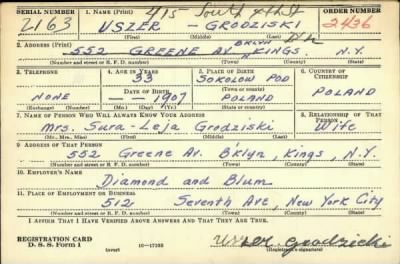 SERIAL NUMBER 1. NAME (Print) 415 South ORDER NUMBER
2163 USZER - GRODZISKI 2436
(First) (Middle) (Last)
2. ADDRESS (Print)
552 GREENE AV BKLYN KINGS. N.Y.
(Number and street or R. F. D. number) (Town) (County) (State)
3. TELEPHONE 4. AGE IN YEARS 5. PLACE OF BIRTH 6. COUNTRY OF CITIZENSHIP
33 SOKOLOW POD
DATE OF BIRTH (Town or county) POLAND
NONE — — 1907 POLAND
(Exchange) (Number) (Mo.) (Day) (Yr.) (State or country)
7. NAME OF PERSON WHO WILL ALWAYS KNOW YOUR ADDRESS 8. RELATIONSHIP OF THAT PERSON
Mrs. Sura-Leja Grodziski Wife
(Mr., Mrs., Miss) (First) (Middle) (Last)
9. ADDRESS OF THAT PERSON
552 Greene Av. Bklyn, Kings, N.Y.
(Number and street or R. F. D. number) (Town) (County) (State)
10. EMPLOYER'S NAME
Diamond and Blum
11. PLACE OF EMPLOYMENT OR BUSINESS
512 Seventh Ave, New York City
(Number and street or R. F. D. number) (Town) (County) (State)
I AFFIRM THAT I HAVE VERIFIED ABOVE ANSWERS AND THAT THEY ARE TRUE.
REGISTRATION CARD
D. S. S. Form 1 (over) 16—17105 (Registrant's signature)